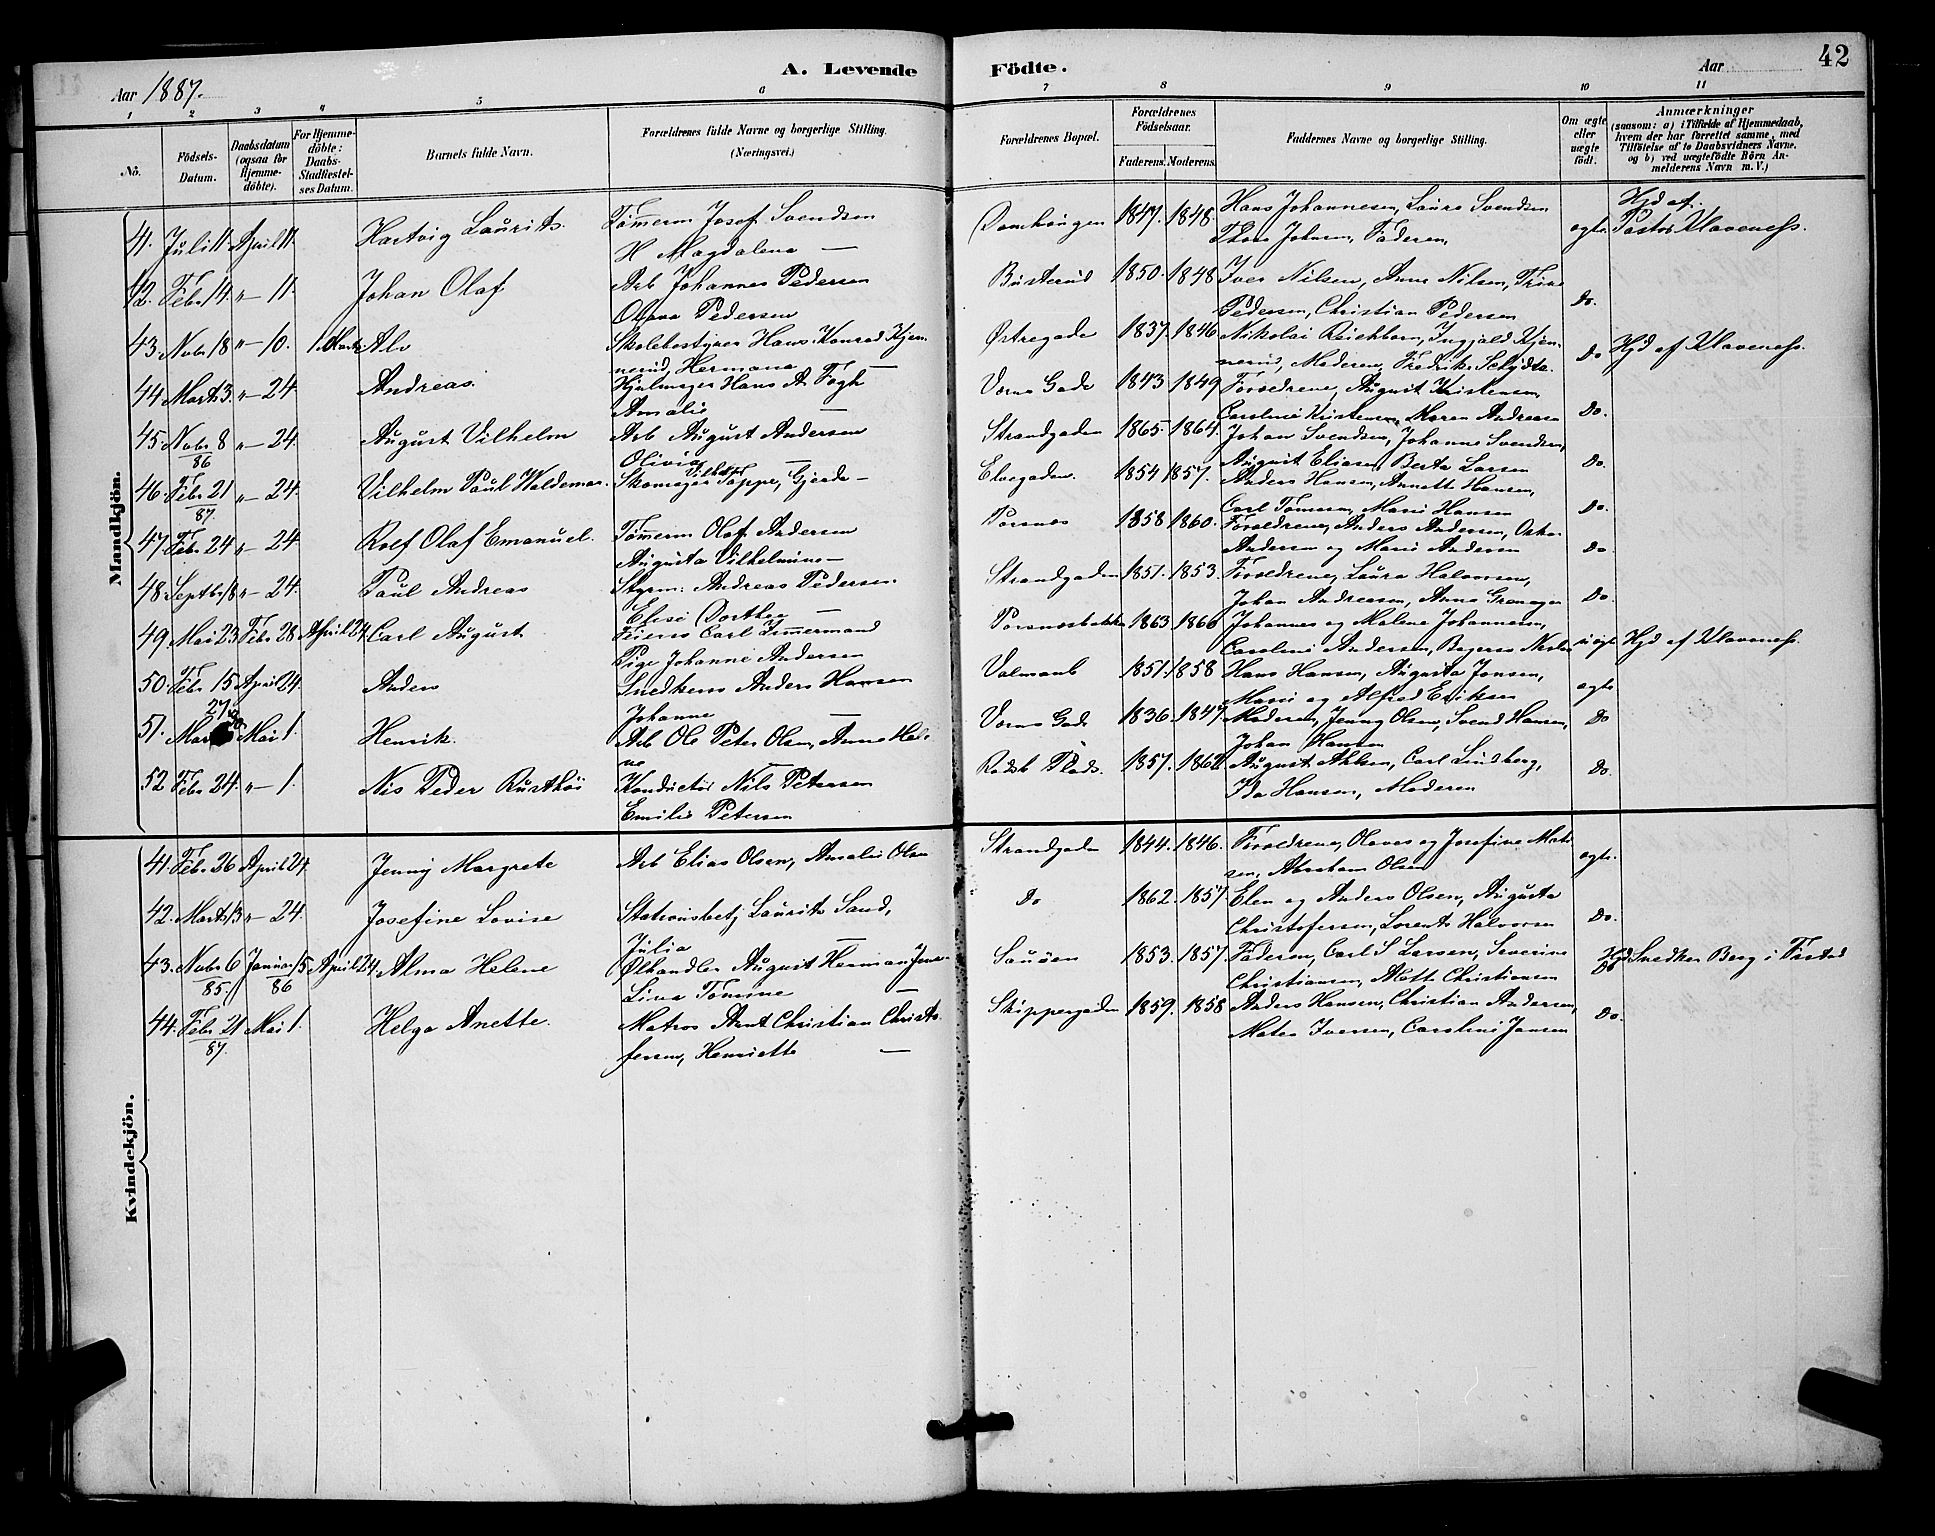 A. Levende Födte.
42
Aar 1887.
Aar
1 2 3 4 5 6 7 8 9 10 11
No.
Födsels-Datum.
Daabsdatum (ogsaa for Hjemme-döbte).
For Hjemme-döbte: Daabs-Stadfæstel-ses Datum.
Barnets fulde Navn.
Forældrenes fulde Navne og borgerlige Stilling. (Næringsvei.)
Forældrenes Bopæl.
Forældrenes Födselsaar.
Faderens. Moderens.
Faddernes Navne og borgerlige Stilling.
Om ægte eller uægte födt.
Anmærkninger
(saasom: a) i Tilfælde af Hjemmedaab, hvem der har forrettet samme, med Tilföielse af to Daabsvidners Navne, og b) ved uægtefödte Börn Anmelderens Navn m. V.)
Mandkjön.
41. Juli 11. April 11. Hartvig Laurits. Tömerm Josef Svendsen 1847. 1848. Hans Johannesen, Laura Svendsen ægte Hjd af
H Magdalena — Thore Johnsen, Faderen, Pastor Klaveness.
42. Febr 14. " — 11. Johan Olaf. Arb Johannes Pedersen Busterud 1850. 1848 Iver Nilsen, Anne Nilsen, Trine Do.
Olava Pedersen Pedersen, Christian Pedersen
43. Novbr 18 " — 10. Alv Skolebestyrer Hans Konrad Kjen- Østregade 1837. 1846 Nikolai Reichborn, Ingjald Kjen- Do Hjd af Klaveness.
nerud, Hermana — nerud, Moderen, Fredrik
44 Marts 3. " — 24 Andreas. Hjulmager Hans A. Fogh Vorns Gade 1843 1849 Forældrene, August Kristensen, Do.
Amalie — Caroline Kristensen, Maren Andreasen
45 Novbr 8/86 " — 24 August Vilhelm Arb August Andersen Strandgaden 1865. 1864. Johan Svendsen, Johanne Svendsen, Do.
Olivia — August Eliasen, Berta Larsen
46. Febr 21/87. " — 24. Vilhelm Paul Waldemar. Skomager Vilhelm Toppe, Gjerda — Elvegaden 1854 1857. Anders Hansen, Annette Hansen, Do.
Carl Tömersen, Marie Hansen
47 Febr 24 " — 24. Rolf Olaf Emanuel. Tömerm Olaf Andersen Porsnes 1858 1860. Forældrene, Anders Andersen, Do.
Augusta Vilhelmine — Andersen og Marie Andersen
48 Septbr 18 " — 24. Paul Andreas Styrm: Andreas Pedersen Strandgaden 1851. 1853. Forældrene, Laura Halvorsen, Do.
Elise Dorthea — Johan Andreasen, Anna
49. Mai 23 Febr 28 April 24 Carl August Carl Timmermand 1863. 1866 Johannes og Malene Johannesen, uægte Hjd af Klaveness.
Pige Johanne Andersen Caroline Andersen,
50. Febr 15 April 24. Anders Snedkersv Anders Hansen 1851. 1858 Hans Hansen, Augusta Jonsen, ægte
Johanne — Marie og Alfred Eriksen
51. Mai 1. Henrik. Arb Ole Peter Olsen, Anne Hele- Vorns Gade 1836. 1847. Moderen, Jenny Olsen, Svend Hansen, Do
ne — Johan Hansen
52 Febr 24. " — 1. Nis Peder Rusthöi Konductör Nils Petersen Raads Plads. 1857. 1862 August Ahlsen, Carl Lindberg, Do.
Emilie Petersen Ida Hansen, Moderen
Kvindekjön.
41. Febr 26 April 24. Jenny Margrete Arb Elias Olsen, Amalie Olsen Strandgaden 1844. 1846. Forældrene, Olaves og Josefine Mati- ægte.
sen, Abraham Olsen
42. Marts 13 " — 24. Josefine Lovise Stationsbetj Laurits Sand, Do 1862. 1857. Elen og Anders Olsen, Augusta Do.
Julia — Christofersen, Lorents Halvorsen
43. Novbr 6/85. Januar 15/86 April 24. Alma Helene Ølhandler August Herman Jensen Sauöen 1853. 1857. Faderen, Carl S Larsen, Severine Do Hjd. Snedker Berg i Tistedalen
Lina Tomine — Christiansen, Mette Christiansen
44. Febr 21/87. Mai 1. Helga Anette. Matros Arnt Christian Christo- Skippergaden 1859. 1858 Anders Hansen, Christian Andersen, Do.
fersen, Henriette — Matea Iversen, Caroline Jansen